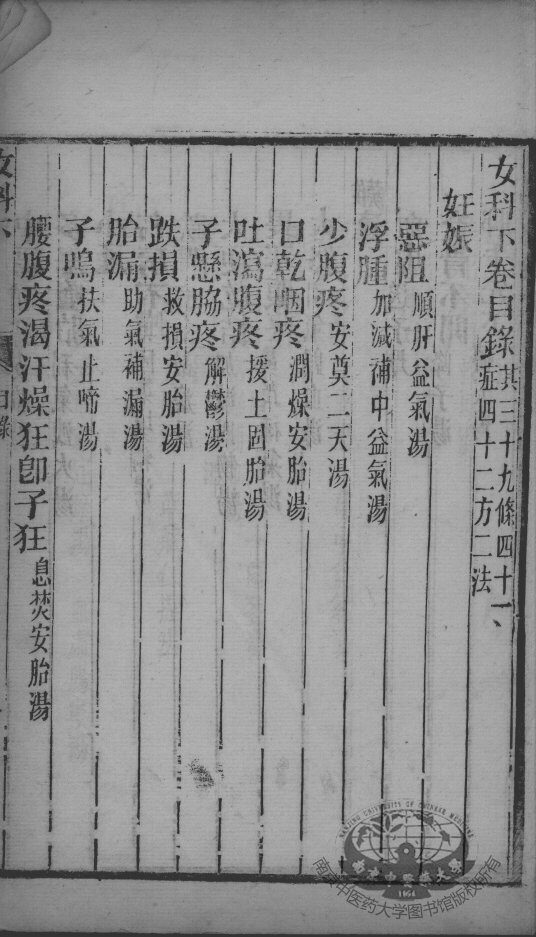 女科下卷目錄共三十九條四十一症四十二方二法
妊娠
惡阻 順肝益氣湯
浮腫 加減補中益氣湯
少腹疼 安奠二天湯
口乾咽疼 潤燥安胎湯
吐瀉腹疼 援土固胎湯
子懸脇疼 解鬱湯
跌損 救損安胎湯
胎漏 助氣補漏湯
子鳴 扶氣止啼湯
腰腹疼渴汗燥狂卽子狂 息焚安胎湯
女科下 目錄
NANJING UNIVERSITY OF CHINESE MEDICINE
南京中醫藥大學
1954
南京中医药大学图书馆版权所有